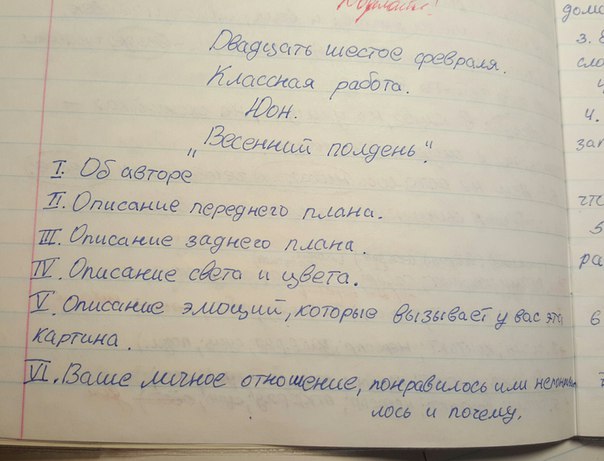 Двадцать шестое февраля.
Классная работа.
Юон.
„Весенний полдень".
I. Об авторе
II. Описание переднего плана.
III. Описание заднего плана.
IV. Описание света и цвета.
V. Описание эмоций, которые вызывает у вас эта
картина.
VI. Ваше личное отношение, понравилось или
лось и почему.
дома
3.
сло
4.
зап
что
5
ра
6